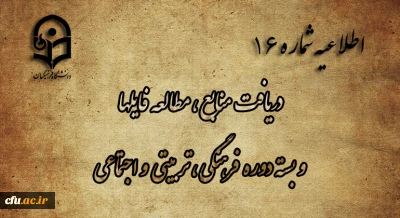 اطلاعیه شماره ۱۶
دانشگاه فرهنگیان
دریافت منابع ، مطالعه فایلها
و بسته دوره فرهنگی، تربیتی و اجتماعی
cfu.ac.ir